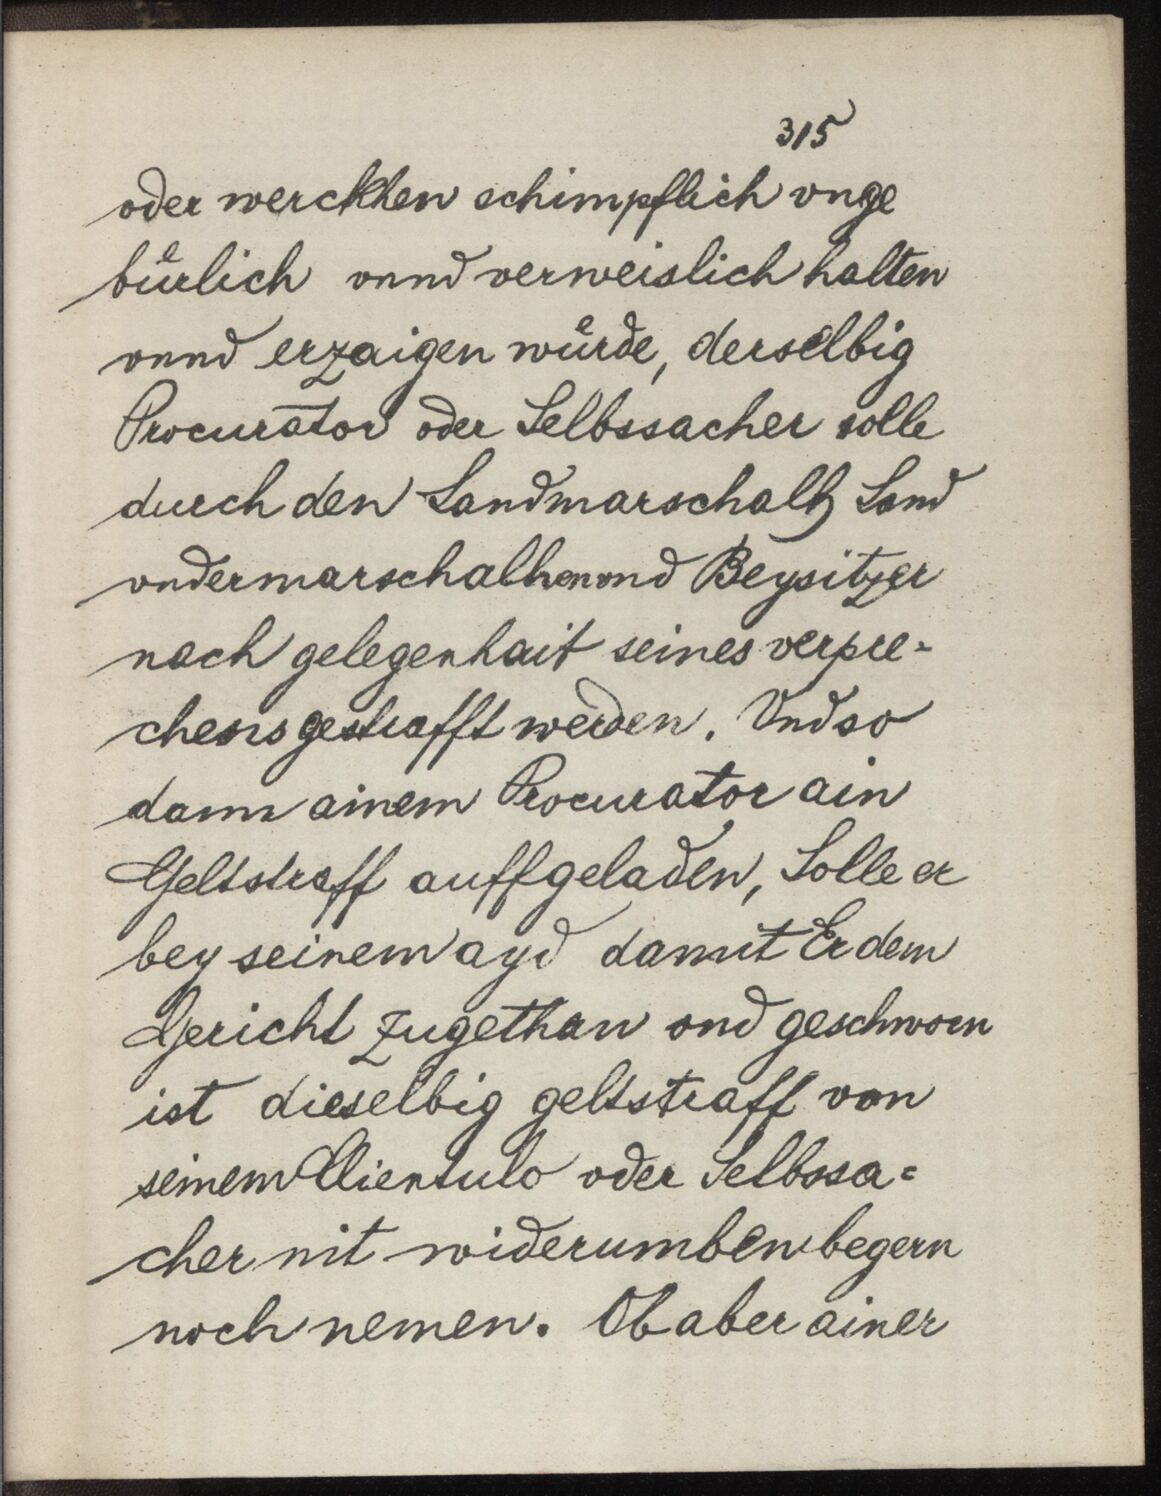 315
oder werckhen schimpflich vnge
bürlich vnnd verweislich halten
vnnd erzaigen würde, derselbig
Procurator oder Selbssacher solle
durch den Landmarschalh Land
vndermarschalhen vnd Beysitzer
nach gelegenhait seines verpre=
chens gestrafft werden. Vnd so
dann ainem Procurator ain
Geltstraff auffgeladen, Solle er
bey seinem ayd damit Er dem
Gericht zugethan vnd geschworn
ist dieselbig geltstraff von
seinem Clientulo oder Selbssa=
cher nit widerumben begern
noch nemen. Ob aber ainer